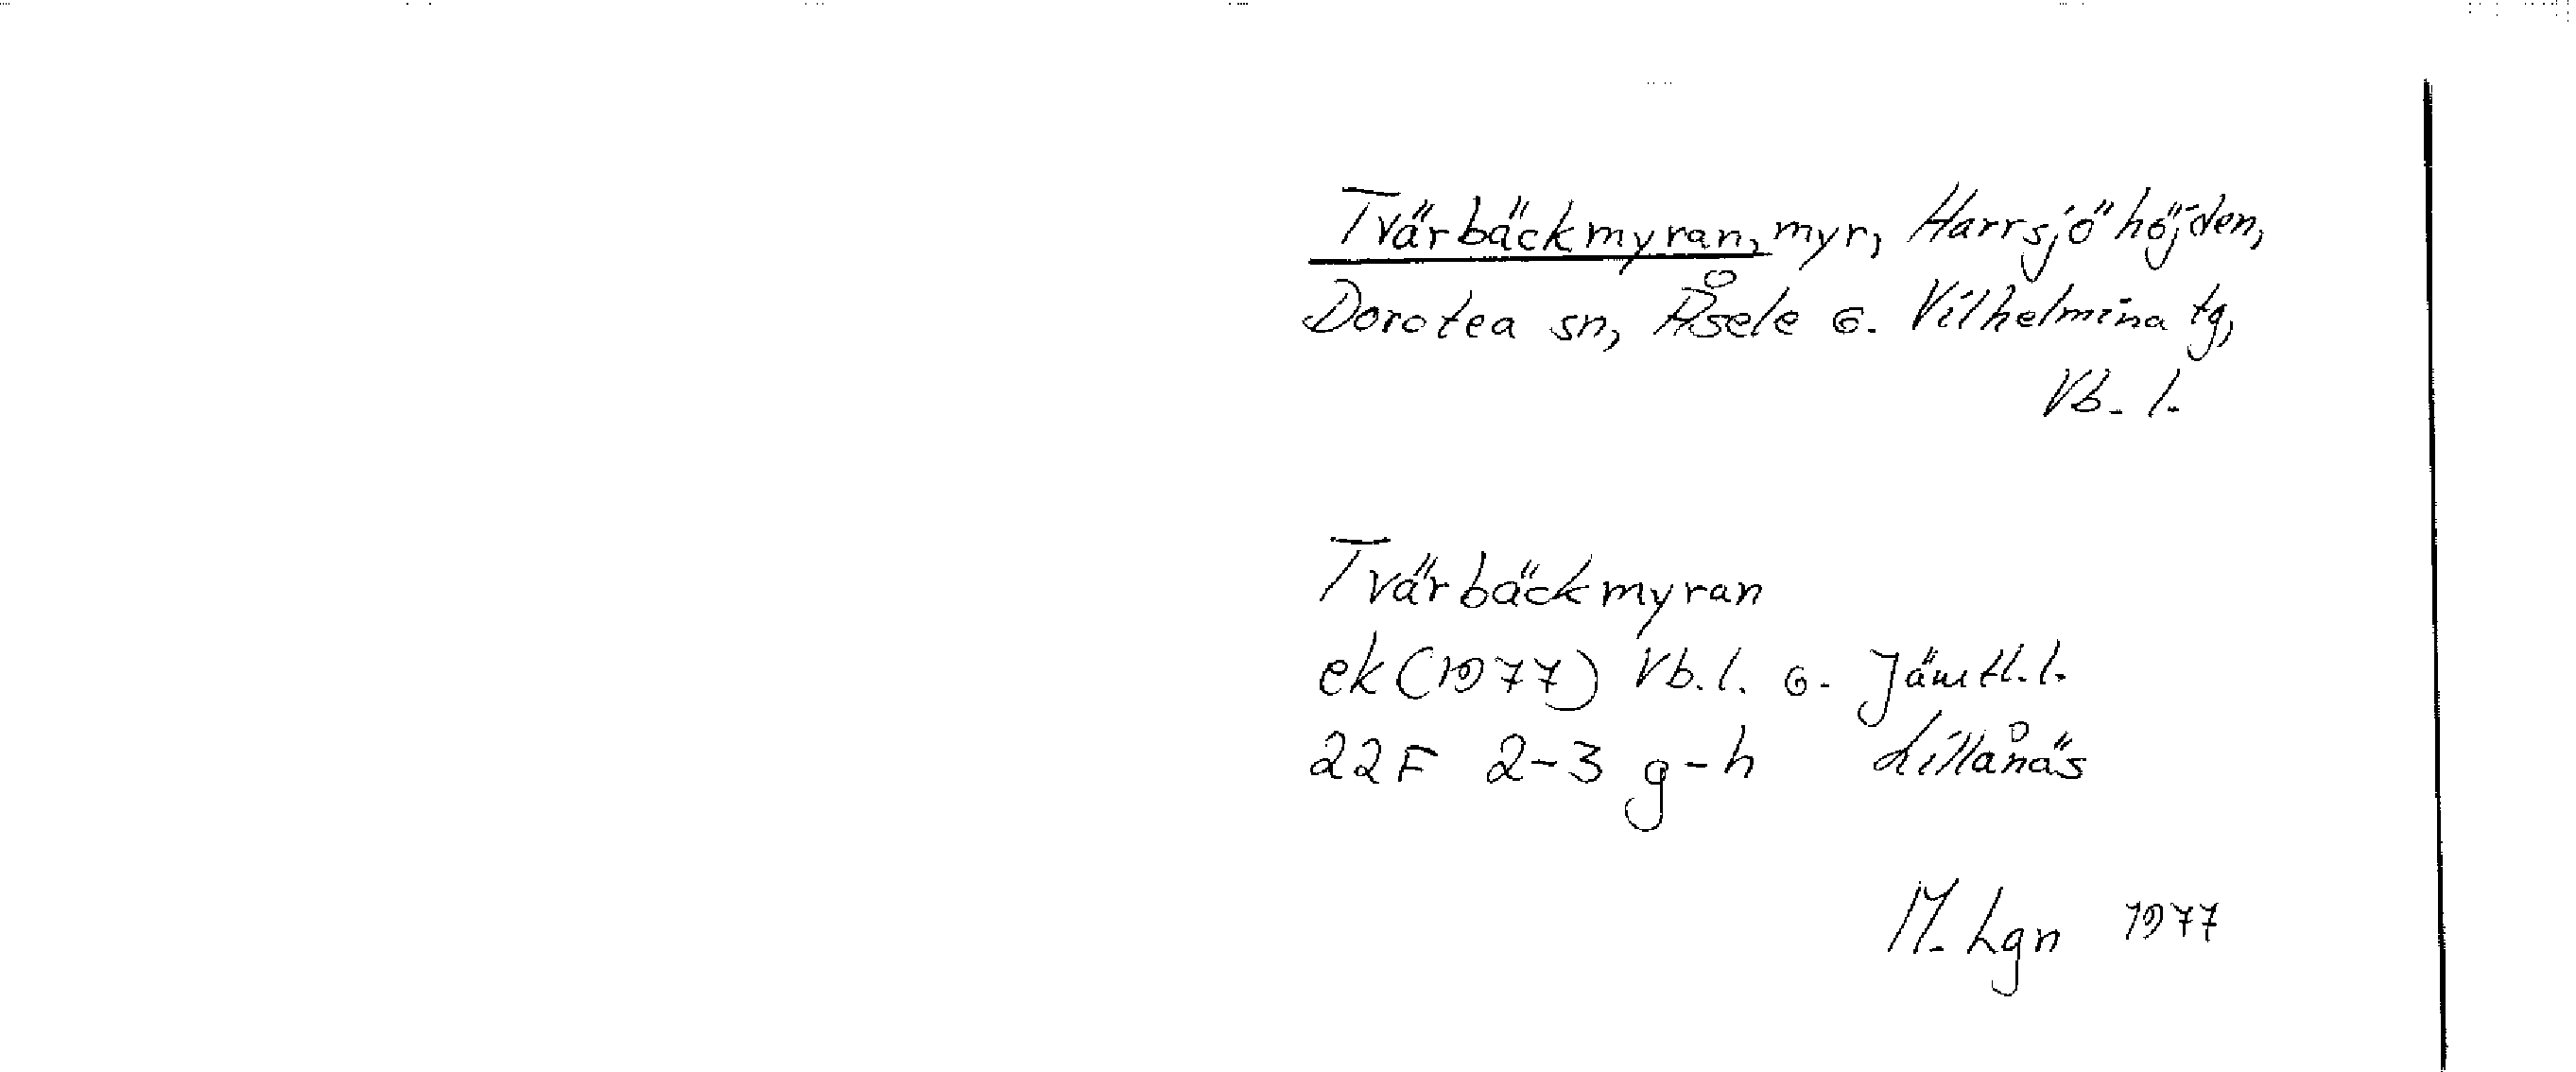 Tvärbäckmyran, myr, Harrsjöhöjden,
Dorotea sn, Åsele o. Vilhelmina tg,
Vb. l.
Tvärbäckmyran
ek (1977) Vb. l. o. Jämtl. l.
22F 2-3 g-h Lillånäs
M. Lgn 1977